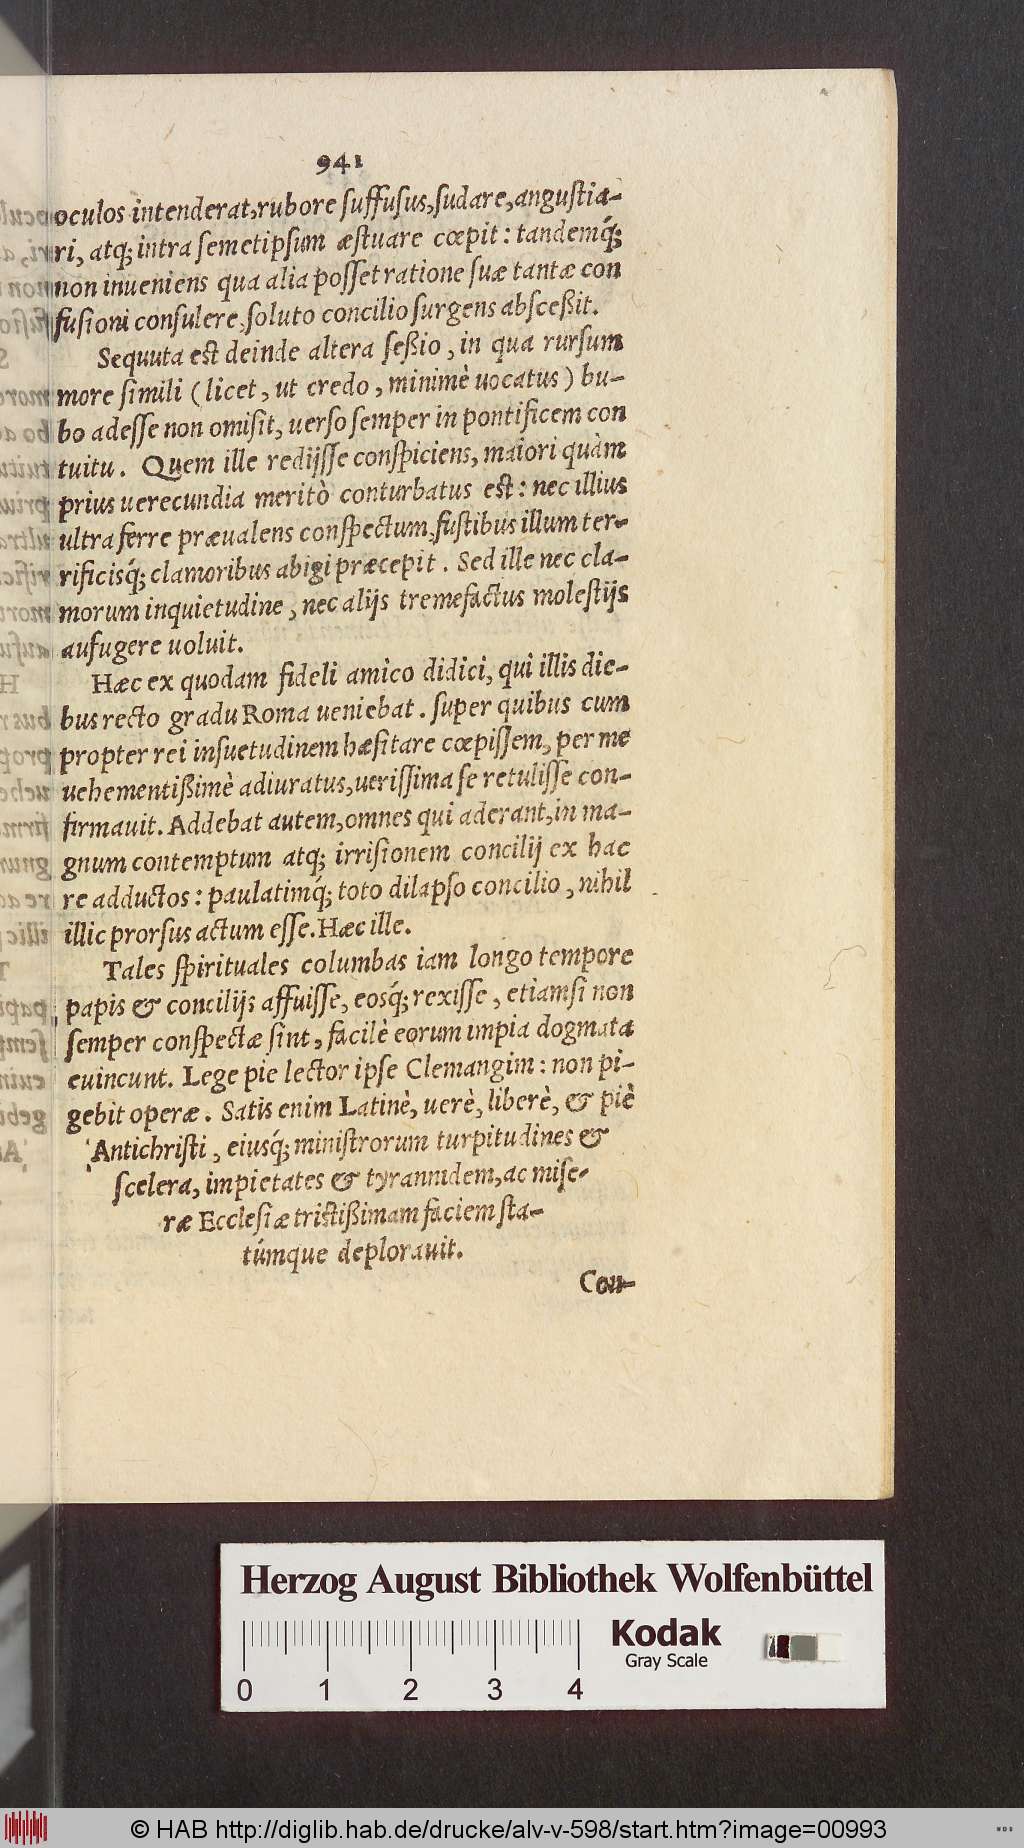 941
oculos intenderat, rubore ſuffuſus, ſudare, anguſtia-
ri, atq; intra ſemetipſum æſtuare cœpit: tandemq́;
non inueniens qua alia poſſet ratione ſuæ tantæ con
fuſioni conſulere, ſoluto concilio ſurgens abſceßit.
Sequuta eſt deinde altera ſeßio, in qua rurſum
more ſimili (licet, ut credo, minimè uocatus) bu-
bo adeſſe non omiſit, uerſo ſemper in pontificem con
tuitu. Quem ille redijſſe conſpiciens, maiori quàm
prius uerecundia meritò conturbatus eſt: nec illius
ultra ferre præualens conſpectum, fuſtibus illum ter-
rificisq́; clamoribus abigi præcepit. Sed ille nec cla-
morum inquietudine, nec alijs tremefactus moleſtijs
aufugere uoluit.
Hæc ex quodam fideli amico didici, qui illis die-
bus recto gradu Roma ueniebat. ſuper quibus cum
propter rei inſuetudinem hæſitare cœpiſſem, per me
uehementißimè adiuratus, ueriſſima ſe retuliſſe con-
firmauit. Addebat autem, omnes qui aderant, in ma-
gnum contemptum atq; irriſionem concilij ex hac
re adductos: paulatimq́; toto dilapſo concilio, nihil
illic prorſus actum eſſe. Hæc ille.
Tales ſpirituales columbas iam longo tempore
papis & concilijs affuiſſe, eosq́; rexiſſe, etiamſi non
ſemper conſpectæ ſint, facilè eorum impia dogmata
euincunt. Lege pie lector ipſe Clemangim: non pi-
gebit operæ. Satis enim Latinè, uerè, liberè, & piè
Antichriſti, eiusq́; miniſtrorum turpitudines &
ſcelera, impietates & tyrannidem, ac miſe-
ræ Eccleſiæ triſtißimam faciem ſta-
túmque deplorauit.
Con-
Herzog August Bibliothek Wolfenbüttel
Kodak
Gray Scale
0 1 2 3 4
© HAB http://diglib.hab.de/drucke/alv-v-598/start.htm?image=00993